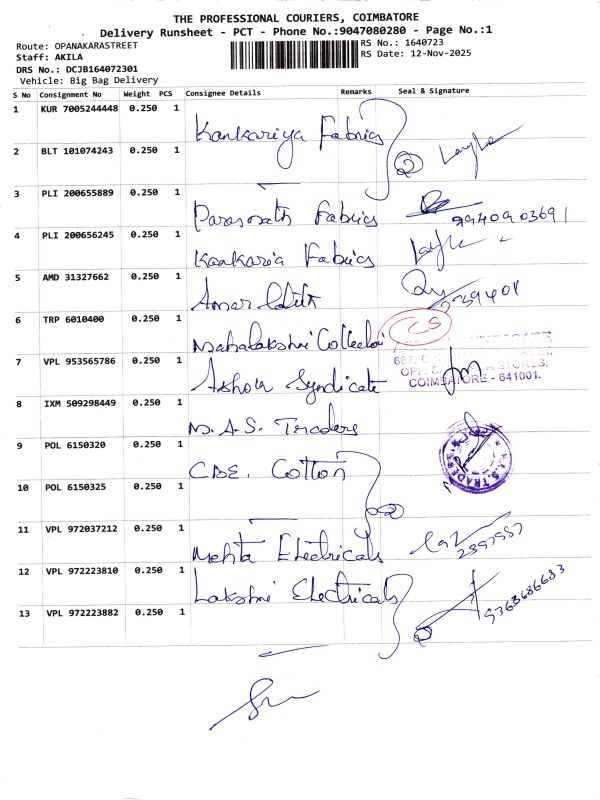 THE PROFESSIONAL COURIERS, COIMBATORE
Delivery Runsheet - PCT - Phone No.:9047080280 - Page No.:1
Route: OPANAKARASTREET RS No.: 1640723
Staff: AKILA RS Date: 12-Nov-2025
DRS No.: DCJB164072301
Vehicle: Big Bag Delivery
S No Consignment No Weight PCS Consignee Details Remarks Seal & Signature
1 KUR 7005244448 0.250 1 Kankariya Fabrics
2 BLT 101074243 0.250 1
3 PLI 200655889 0.250 1 Parasnath Fabrics 9940903691
4 PLI 200656245 0.250 1 Kankaria Fabrics
5 AMD 31327662 0.250 1 Amar
6 TRP 6010400 0.250 1 Mahalakshmi
7 VPL 953565786 0.250 1 Ashok Syndicate
COIMBATORE - 641001.
8 IXM 509298449 0.250 1 M.A.S. Traders
9 POL 6150320 0.250 1 CBE. Cotton
10 POL 6150325 0.250 1
11 VPL 972037212 0.250 1 Mehta Electricals
12 VPL 972223810 0.250 1 Lakshmi Electricals 9368686683
13 VPL 972223882 0.250 1